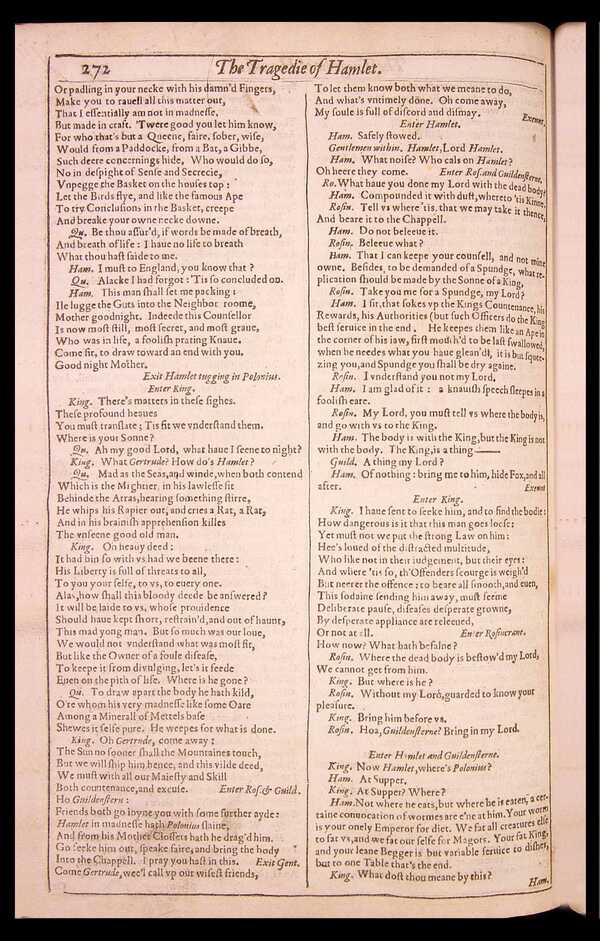 272
The Tragedie of Hamlet.
Or padling in your necke with his damn'd Fingers,
Make you to rauell all this matter out,
That I essentially am not in madnesse,
But made in craft. 'Twere good you let him know,
For who that's but a Queene, faire, sober, wise,
Would from a Paddocke, from a Bat, a Gibbe,
Such deere concernings hide, Who would do so,
No in despight of Sense and Secrecie,
Vnpegge the Basket on the houses top:
Let the Birds flye, and like the famous Ape
To try Conclusions in the Basket, creepe
And breake your owne necke downe.
Qu. Be thou assur'd, if words be made of breath,
And breath of life: I haue no life to breath
What thou hast saide to me.
Ham. I must to England, you know that?
Qu. Alacke I had forgot: 'Tis so concluded on.
Ham. This man shall set me packing:
Ile lugge the Guts into the Neighbor roome,
Mother goodnight. Indeede this Counsellor
Is now most still, most secret, and most graue,
Who was in life, a foolish prating Knaue.
Come sir, to draw toward an end with you.
Good night Mother.
Exit Hamlet tugging in Polonius.
Enter King.
King. There's matters in these sighes.
These profound heaues
You must translate; Tis fit we vnderstand them.
Where is your Sonne?
Qu. Ah my good Lord, what haue I seene to night?
King. What Gertrude? How do's Hamlet?
Qu. Mad as the Seas, and winde, when both contend
Which is the Mightier, in his lawlesse fit
Behinde the Arras, hearing something stirre,
He whips his Rapier out, and cries a Rat, a Rat,
And in his brainish apprehension killes
The vnseene good old man.
King. Oh heauy deed:
It had bin so with vs had we beene there:
His Liberty is full of threats to all,
To you your selfe, to vs, to euery one.
Alas, how shall this bloody deede be answered?
It will be laide to vs, whose prouidence
Should haue kept short, restrain'd, and out of haunt,
This mad yong man. But so much was our loue,
We would not vnderstand what was most fit,
But like the Owner of a foule disease,
To keepe it from divulging, let's it feede
Euen on the pith of life. Where is he gone?
Qu. To draw apart the body he hath kild,
O're whom his very madnesse like some Oare
Among a Minerall of Mettels base
Shewes it selfe pure. He weepes for what is done.
King. Oh Gertrude, come away:
The Sun no sooner shall the Mountaines touch,
But we will ship him hence, and this vilde deed,
We must with all our Maiesty and Skill
Both countenance, and excuse. Enter Ros. & Guild.
Ho Guildenstern:
Friends both go ioyne you with some further ayde:
Hamlet in madnesse hath Polonius slaine,
And from his Mother Clossets hath he drag'd him.
Go seeke him out, speake faire, and bring the body
Into the Chappell. I pray you hast in this. Exit Gent.
Come Gertrude, wee'l call vp our wisest friends,
To let them know both what we meane to do,
And what's vntimely done. Oh come away,
My soule is full of discord and dismay. Exeunt.
Enter Hamlet.
Ham. Safely stowed.
Gentlemen within. Hamlet, Lord Hamlet.
Ham. What noise? Who cals on Hamlet?
Oh heere they come. Enter Ros. and Guildensterne.
Ro. What haue you done my Lord with the dead body?
Ham. Compounded it with dust, whereto 'tis Kinne.
Rosin. Tell vs where 'tis, that we may take it thence,
And beare it to the Chappell.
Ham. Do not beleeue it.
Rosin. Beleeue what?
Ham. That I can keepe your counsell, and not mine
owne. Besides, to be demanded of a Spundge, what re-
plication should be made by the Sonne of a King.
Rosin. Take you me for a Spundge, my Lord?
Ham. I sir, that sokes vp the Kings Countenance, his
Rewards, his Authorities (but such Officers do the King
best seruice in the end. He keepes them like an Ape in
the corner of his iaw, first mouth'd to be last swallowed,
when he needes what you haue glean'd, it is but squee-
zing you, and Spundge you shall be dry againe.
Rosin. I vnderstand you not my Lord.
Ham. I am glad of it: a knauish speech sleepes in a
foolish eare.
Rosin. My Lord, you must tell vs where the body is,
and go with vs to the King.
Ham. The body is with the King, but the King is not
with the body. The King, is a thing——
Guild. A thing my Lord?
Ham. Of nothing: bring me to him, hide Fox, and all
after. Exeunt
Enter King.
King. I haue sent to seeke him, and to find the bodie:
How dangerous is it that this man goes loose:
Yet must not we put the strong Law on him:
Hee's loued of the distracted multitude,
Who like not in their iudgement, but their eyes:
And where 'tis so, th'Offenders scourge is weigh'd
But neerer the offence: to beare all smooth, and euen,
This sodaine sending him away, must seeme
Deliberate pause, diseases desperate growne,
By desperate appliance are releeued,
Or not at all. Enter Rosincrane.
How now? What hath befalne?
Rosin. Where the dead body is bestow'd my Lord,
We cannot get from him.
King. But where is he?
Rosin. Without my Lord, guarded to know your
pleasure.
King. Bring him before vs.
Rosin. Hoa, Guildensterne? Bring in my Lord.
Enter Hamlet and Guildensterne.
King. Now Hamlet, where's Polonius?
Ham. At Supper.
King. At Supper? Where?
Ham. Not where he eats, but where he is eaten, a cer-
taine conuocation of wormes are e'ne at him. Your worm
is your onely Emperor for diet. We fat all creatures else
to fat vs, and we fat our selfe for Magots. Your fat King,
and your leane Begger is but variable seruice to dishes,
but to one Table that's the end.
King. What dost thou meane by this?
Ham.